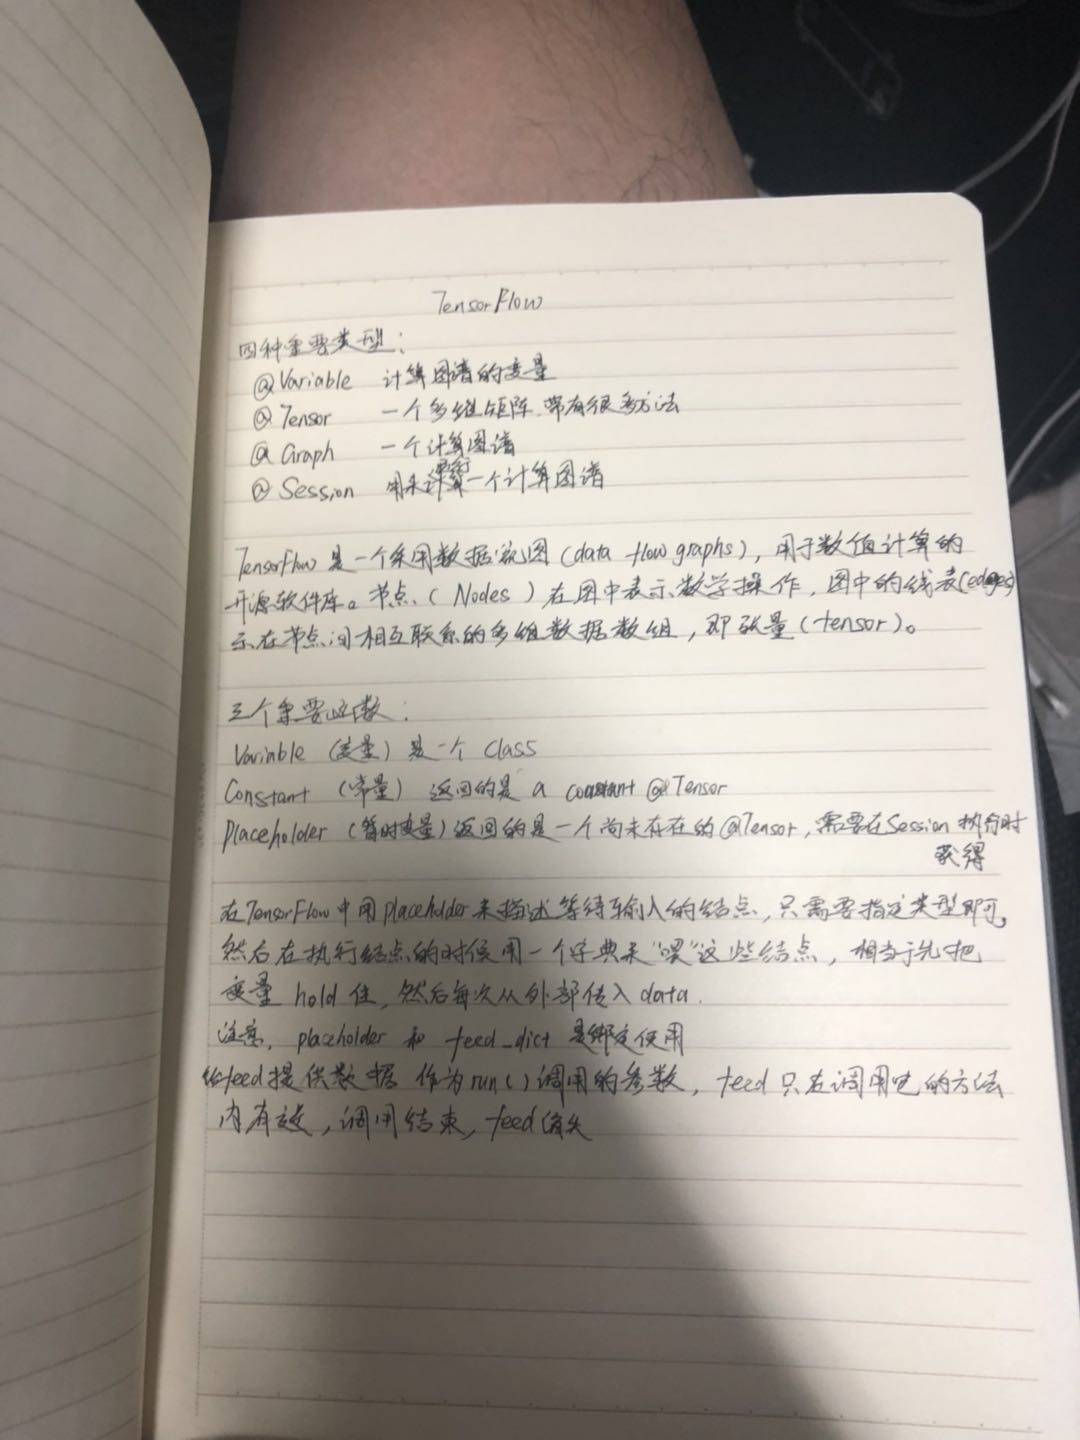 TensorFlow
四种重要类型：
@Variable 计算图谱的变量
@Tensor 一个多维矩阵,带有很多方法
@Graph 一个计算图谱
@Session 用来运行一个计算图谱
TensorFlow 是一个采用数据流图（data flow graphs），用于数值计算的
开源软件库。节点（Nodes）在图中表示数学操作，图中的线表(edges)
示在节点间相互联系的多维数据数组，即张量（tensor）。
三个重要函数：
Variable （变量）是一个 class
Constant （常量） 返回的是 a constant @Tensor
Placeholder（暂时变量）返回的是一个尚未存在的@Tensor,需要在Session执行时
获得
在TensorFlow中用placeholder来描述等待输入的结点，只需要指定类型即可,
然后在执行结点的时候用一个字典来“喂”这些结点，相当于先把
变量 hold 住,然后每次从外部传入 data.
注意, placeholder 和 feed_dict 是绑定使用
给feed提供数据 作为run()调用的参数, feed只在调用它的方法
内有效，调用结束, feed消失